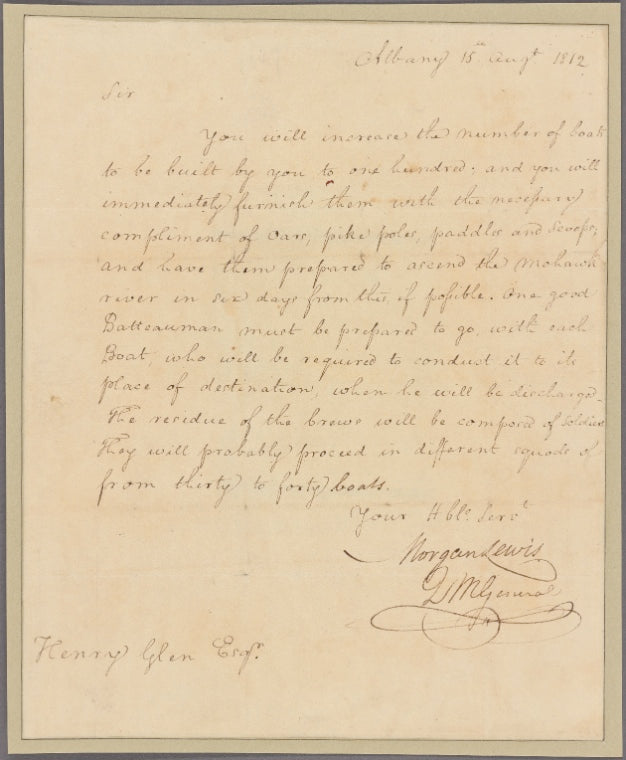 Albany 15th Augt 1812
Sir
You will increase the number of boats
to be built by you to one hundred; and you will
immediately furnish them with the necessary
compliment of Oars, pike poles, paddles and Scoops,
and have them prepared to ascend the Mohawk
river in six days from this, if possible. One good
Batteauman must be prepared to go, with each
Boat, who will be required to conduct it to its
place of destination, when he will be discharged.
The residue of the Crews will be composed of Soldiers
They will probably proceed in different squads of
from thirty to forty boats.
Your Hble. Servt
Morgan Lewis
QMGeneral
Henry Glen Esqr.